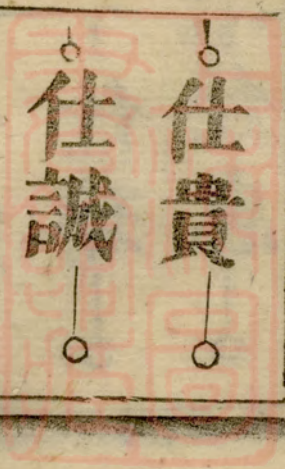 仕貴
仕誠